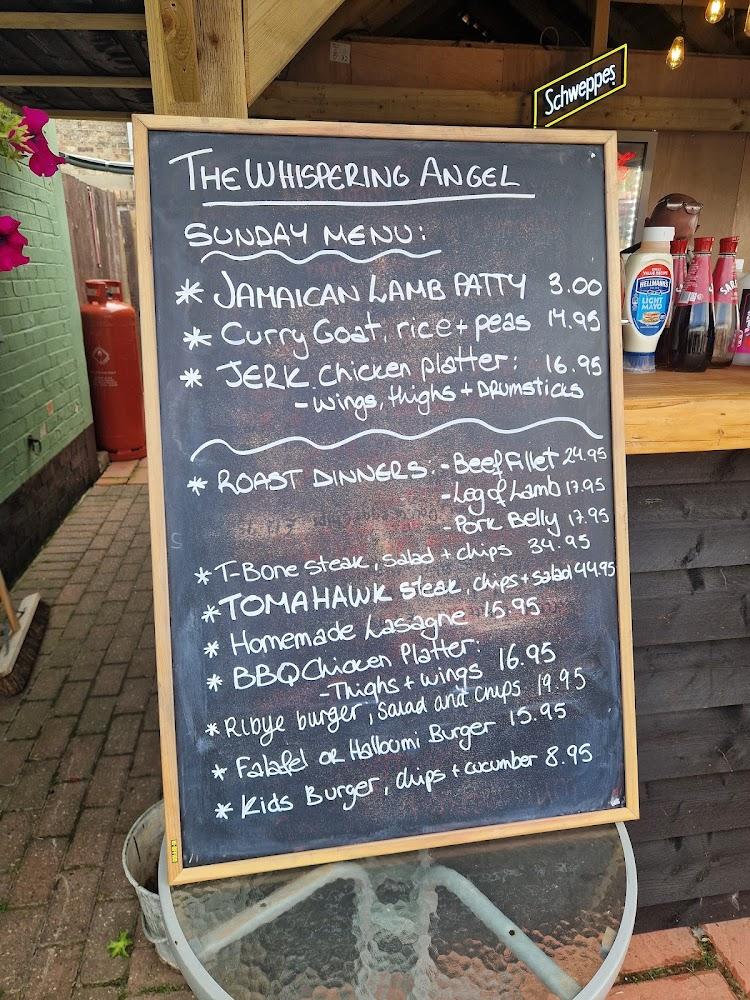 Schweppes
THE WHISPERING ANGEL
SUNDAY MENU:
* JAMAICAN LAMB PATTY 3.00
* Curry Goat, rice + peas 14.95
* JERK chicken platter: 16.95
- wings, thighs + DRUMSTICKS
* ROAST DINNERS: - Beef Fillet 24.95
- Leg of Lamb 17.95
- Pork Belly 17.95
* T-Bone steak, salad + chips 34.95
* TOMAHAWK steak, chips + salad 44.95
* Homemade Lasagne 15.95
* BBQ Chicken Platter:
- Thighs + wings 16.95
* Ribye burger, salad and chips 19.95
* Falafel OR Halloumi Burger 15.95
* Kids Burger, chips + cucumber 8.95
HELLMANN'S
LIGHT
MAYO